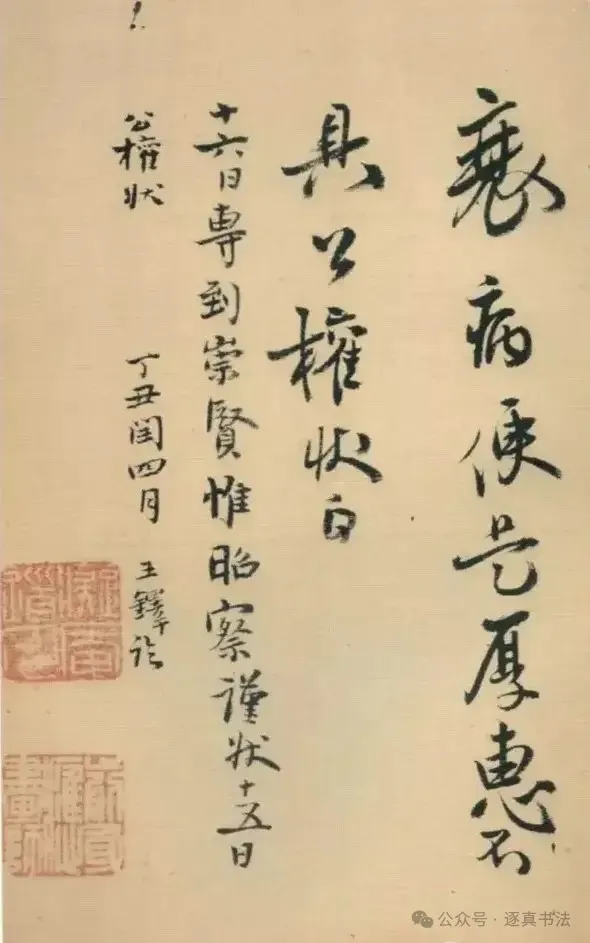 衰病便是厚惠不
具公權狀白
十六日專到崇賢惟昭察謹狀十五日
公權狀
丁丑閏四月 王鐸
公众号·逐真书法